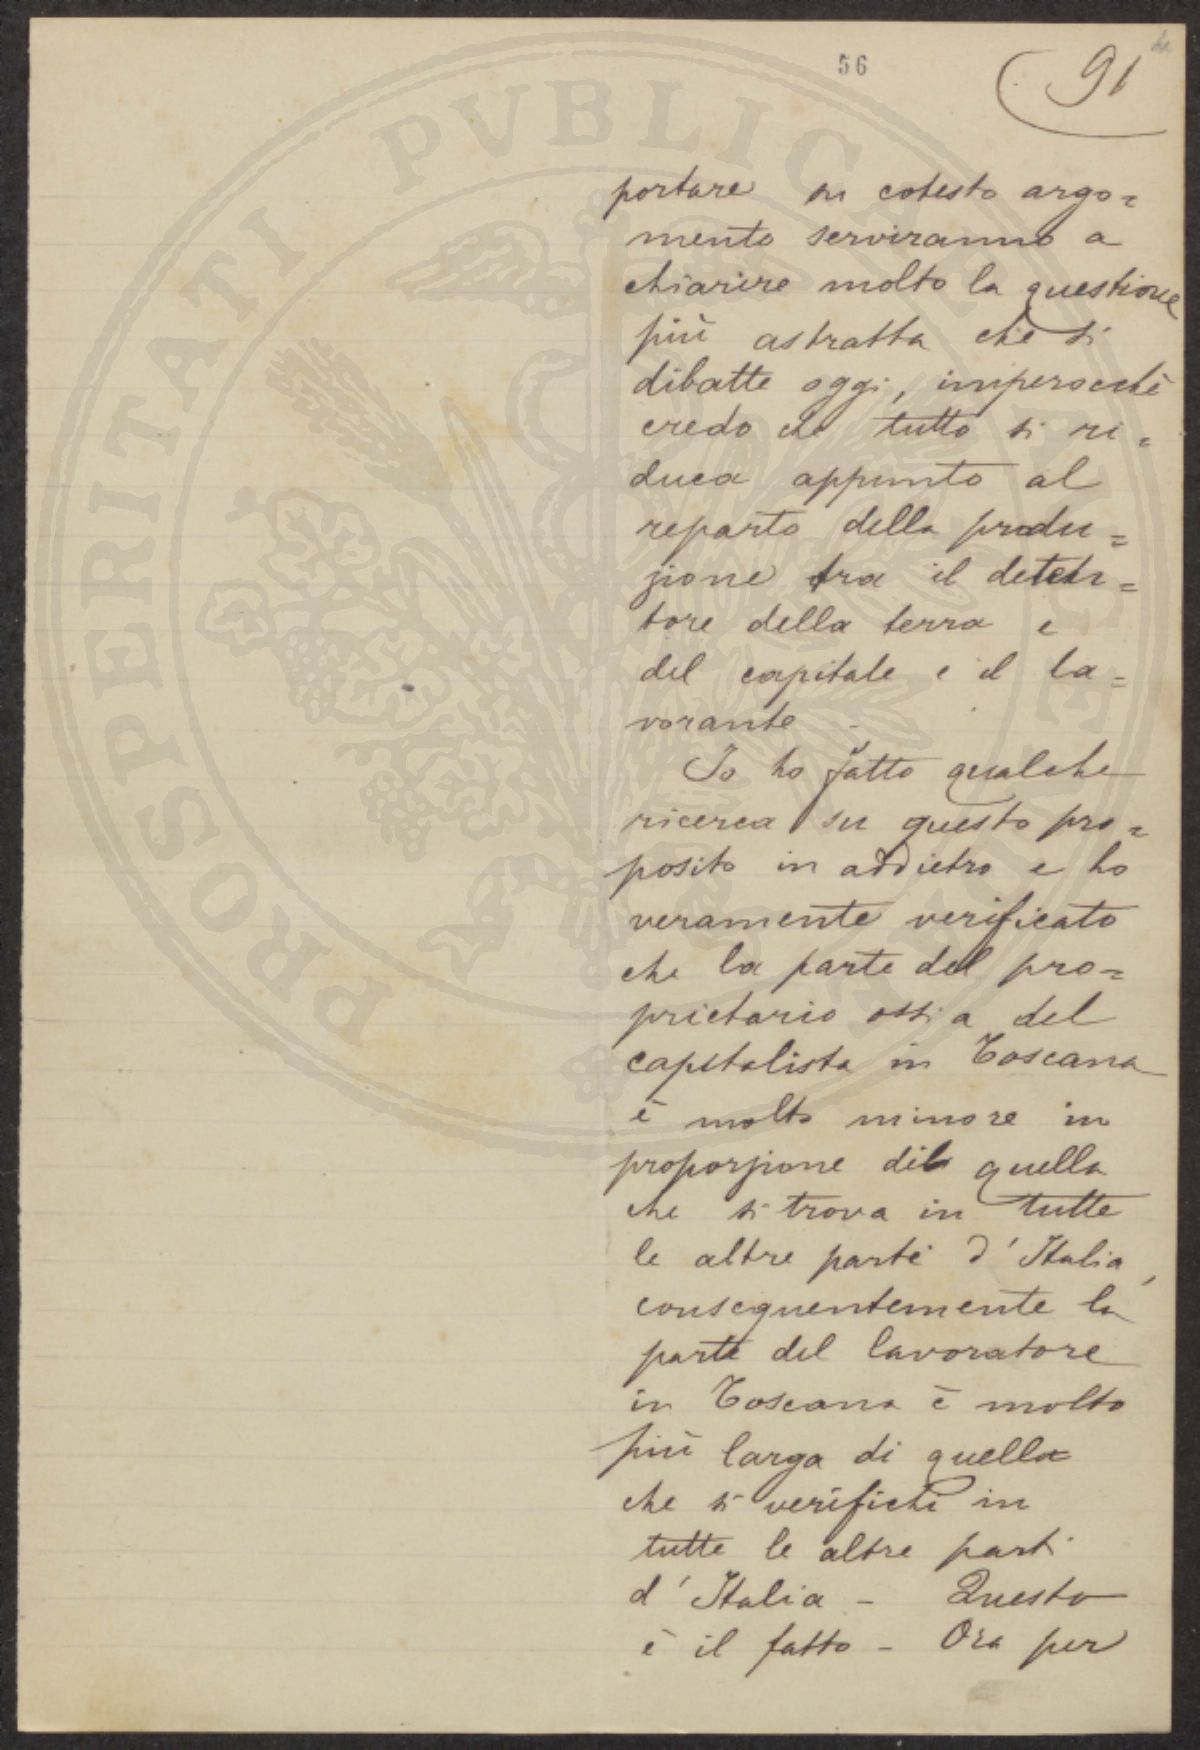 56
91
portare su cotesto argo=
mento serviranno a
chiarire molto la questione
più astratta che si
dibatte oggi, imperocchè
credo che tutto si ri=
duca appunto al
reparto della produ=
zione tra il deten=
tore della terra e
del capitale e il la=
vorante –
Io ho fatto qualche
ricerca su questo pro=
posito in addietro e ho
veramente verificato
che la parte del pro=
prietario ossia del
capitalista in Toscana
è molto minore in
proporzione di quella
che si trova in tutte
le altre parti d'Italia,
conseguentemente la
parte del lavoratore
in Toscana è molto
più larga di quella
che si verifichi in
tutte le altre parti
d'Italia – Questo
è il fatto – Ora per
PROSPERITATI PVBLICAE AVGENDAE